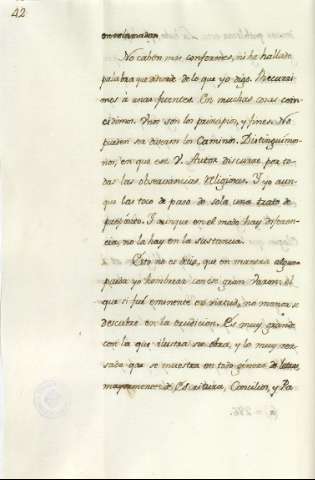 42
en relamadas.
No caben mas conformes, ni he hallado
palabra que disiente de lo que yo digo. Recurri-
mos à unas fuentes. En muchas cosas coin-
cidimos. Unos son los principios, y fines. No
pueden ser diversos los Caminos. Distinguimo-
nos, en que este V. Autor discurre por to-
das las observancias Religiosas. Y yo aun-
que las toco de paso, de sola una trato de
proposito. Y aunque en el modo hay diferen-
cia, no la hay en la sustancia.
Esto no es decir, que en manera alguna
pueda yo hombrear con ese gran Varon. el
que si fue eminente en virtud, no menos se
descubre en la erudicion. Es muy grande
con la que ilustra su obra, y lo muy ver-
sado que se muestra en todo género de letras,
mayormente de Escritura, Concilios, y Pa-